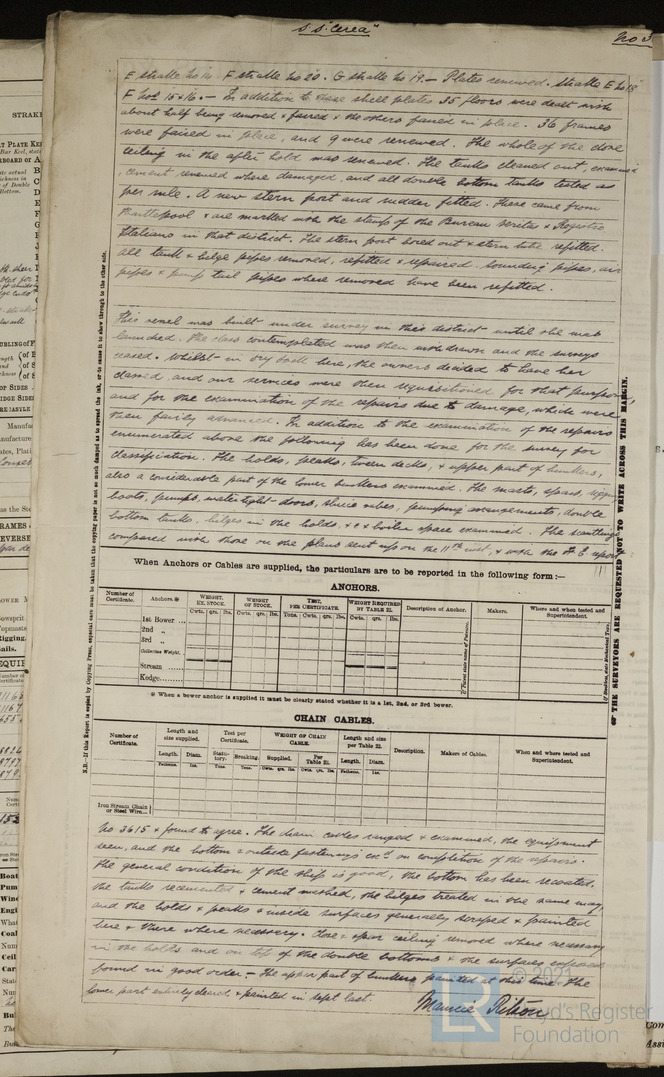 S.S. "Cerea"
No 3
E strake No 16. F strake No 20. G strake No 19. — Plates renewed. Strake E No 18
F Nos 15 & 16. — In addition to these shell plates 35 floors were dealt with
about half being removed & faired & the others faired in place. 36 frames
were faired in place, and 9 were renewed. The whole of the close
ceiling in the after hold was renewed. The tanks cleaned out, examined
, cement renewed where damaged, and all double bottom tanks tested as
per rule. A new stern post and rudder fitted. These came from
Hartlepool & are marked with the stamp of the Bureau Veritas & Registro
Italiano in that district. The stern post bored out & stern tube refitted.
All tank & bilge pipes removed, refitted & repaired, sounding pipes, air
pipes & pump tail pipes where removed have been refitted.
This vessel was built under survey in this district until she was
launched. The class contemplated was then withdrawn and the surveys
ceased. Whilst in dry dock here, the owners decided to have her
classed, and our services were then requisitioned for that purpose,
and for the examination of the repairs due to damage, which were
then fairly advanced. In addition to the examination of the repairs
enumerated above the following has been done for the survey for
classification. The holds, peaks, tween decks, & upper part of bunkers,
also a considerable part of the lower bunkers examined. The masts, spars, rigging
boats, pumps, watertight doors, sluice valves, pumping arrangements, double
bottom tanks, bilges in the holds, & boiler space examined. The scantlings
compared with those on the plans sent up on the 11th inst, & with the report
When Anchors or Cables are supplied, the particulars are to be reported in the following form :—
ANCHORS.
Number of Certificate. Anchors.* WEIGHT. EX. STOCK. WEIGHT OF STOCK. TEST, PER CERTIFICATE. WEIGHT REQUIRED BY TABLE 22. Description of Anchor. Makers. Where and when tested and Superintendent.
Cwts. qrs. lbs. Cwts. qrs. lbs. Tons. Cwts. qrs. lbs. Cwts. qrs. lbs.
1st Bower ...
2nd „
3rd „
Collective Weight.
Stream ......
Kedge........
* When a bower anchor is supplied it must be clearly stated whether it is a 1st, 2nd, or 3rd bower.
CHAIN CABLES.
Number of Certificate. Length and size supplied. Test per Certificate. WEIGHT OF CHAIN CABLE. Length and size per Table 22. Description. Makers of Cables. When and where tested and Superintendent.
Length. Diam. Statutory. Breaking. Supplied. Per Table 22. Length. Diam.
Fathoms. Ins. Tons. Tons. Cwts. qrs. lbs. Cwts. qrs. lbs. Fathoms. Ins.
Iron Stream Chain or Steel Wire...
No 3615 & found to agree. The chain cables ranged & examined, the equipment
seen, and the bottom & outside fastenings on completion of the repairs.
The general condition of the ship is good, the bottom has been recoated,
the tanks recemented & cement washed, the bilges treated in the same way,
and the holds & peaks & inside surfaces generally scraped & painted
here & there where necessary. Close & spar ceiling removed where necessary
in the holds and on top of the double bottoms & the surfaces exposed
found in good order — The upper part of bunkers painted at this time. The
lower part entirely cleared, & painted in Sept last.
N.B.—If this Report is copied by Copying Press, especial care must be taken that the copying paper is not so much damped as to spread the ink, or to cause it to show through to the other side.
THE SURVEYORS ARE REQUESTED NOT TO WRITE ACROSS THIS MARGIN.
© 2021
LR
Lloyd's Register
Foundation